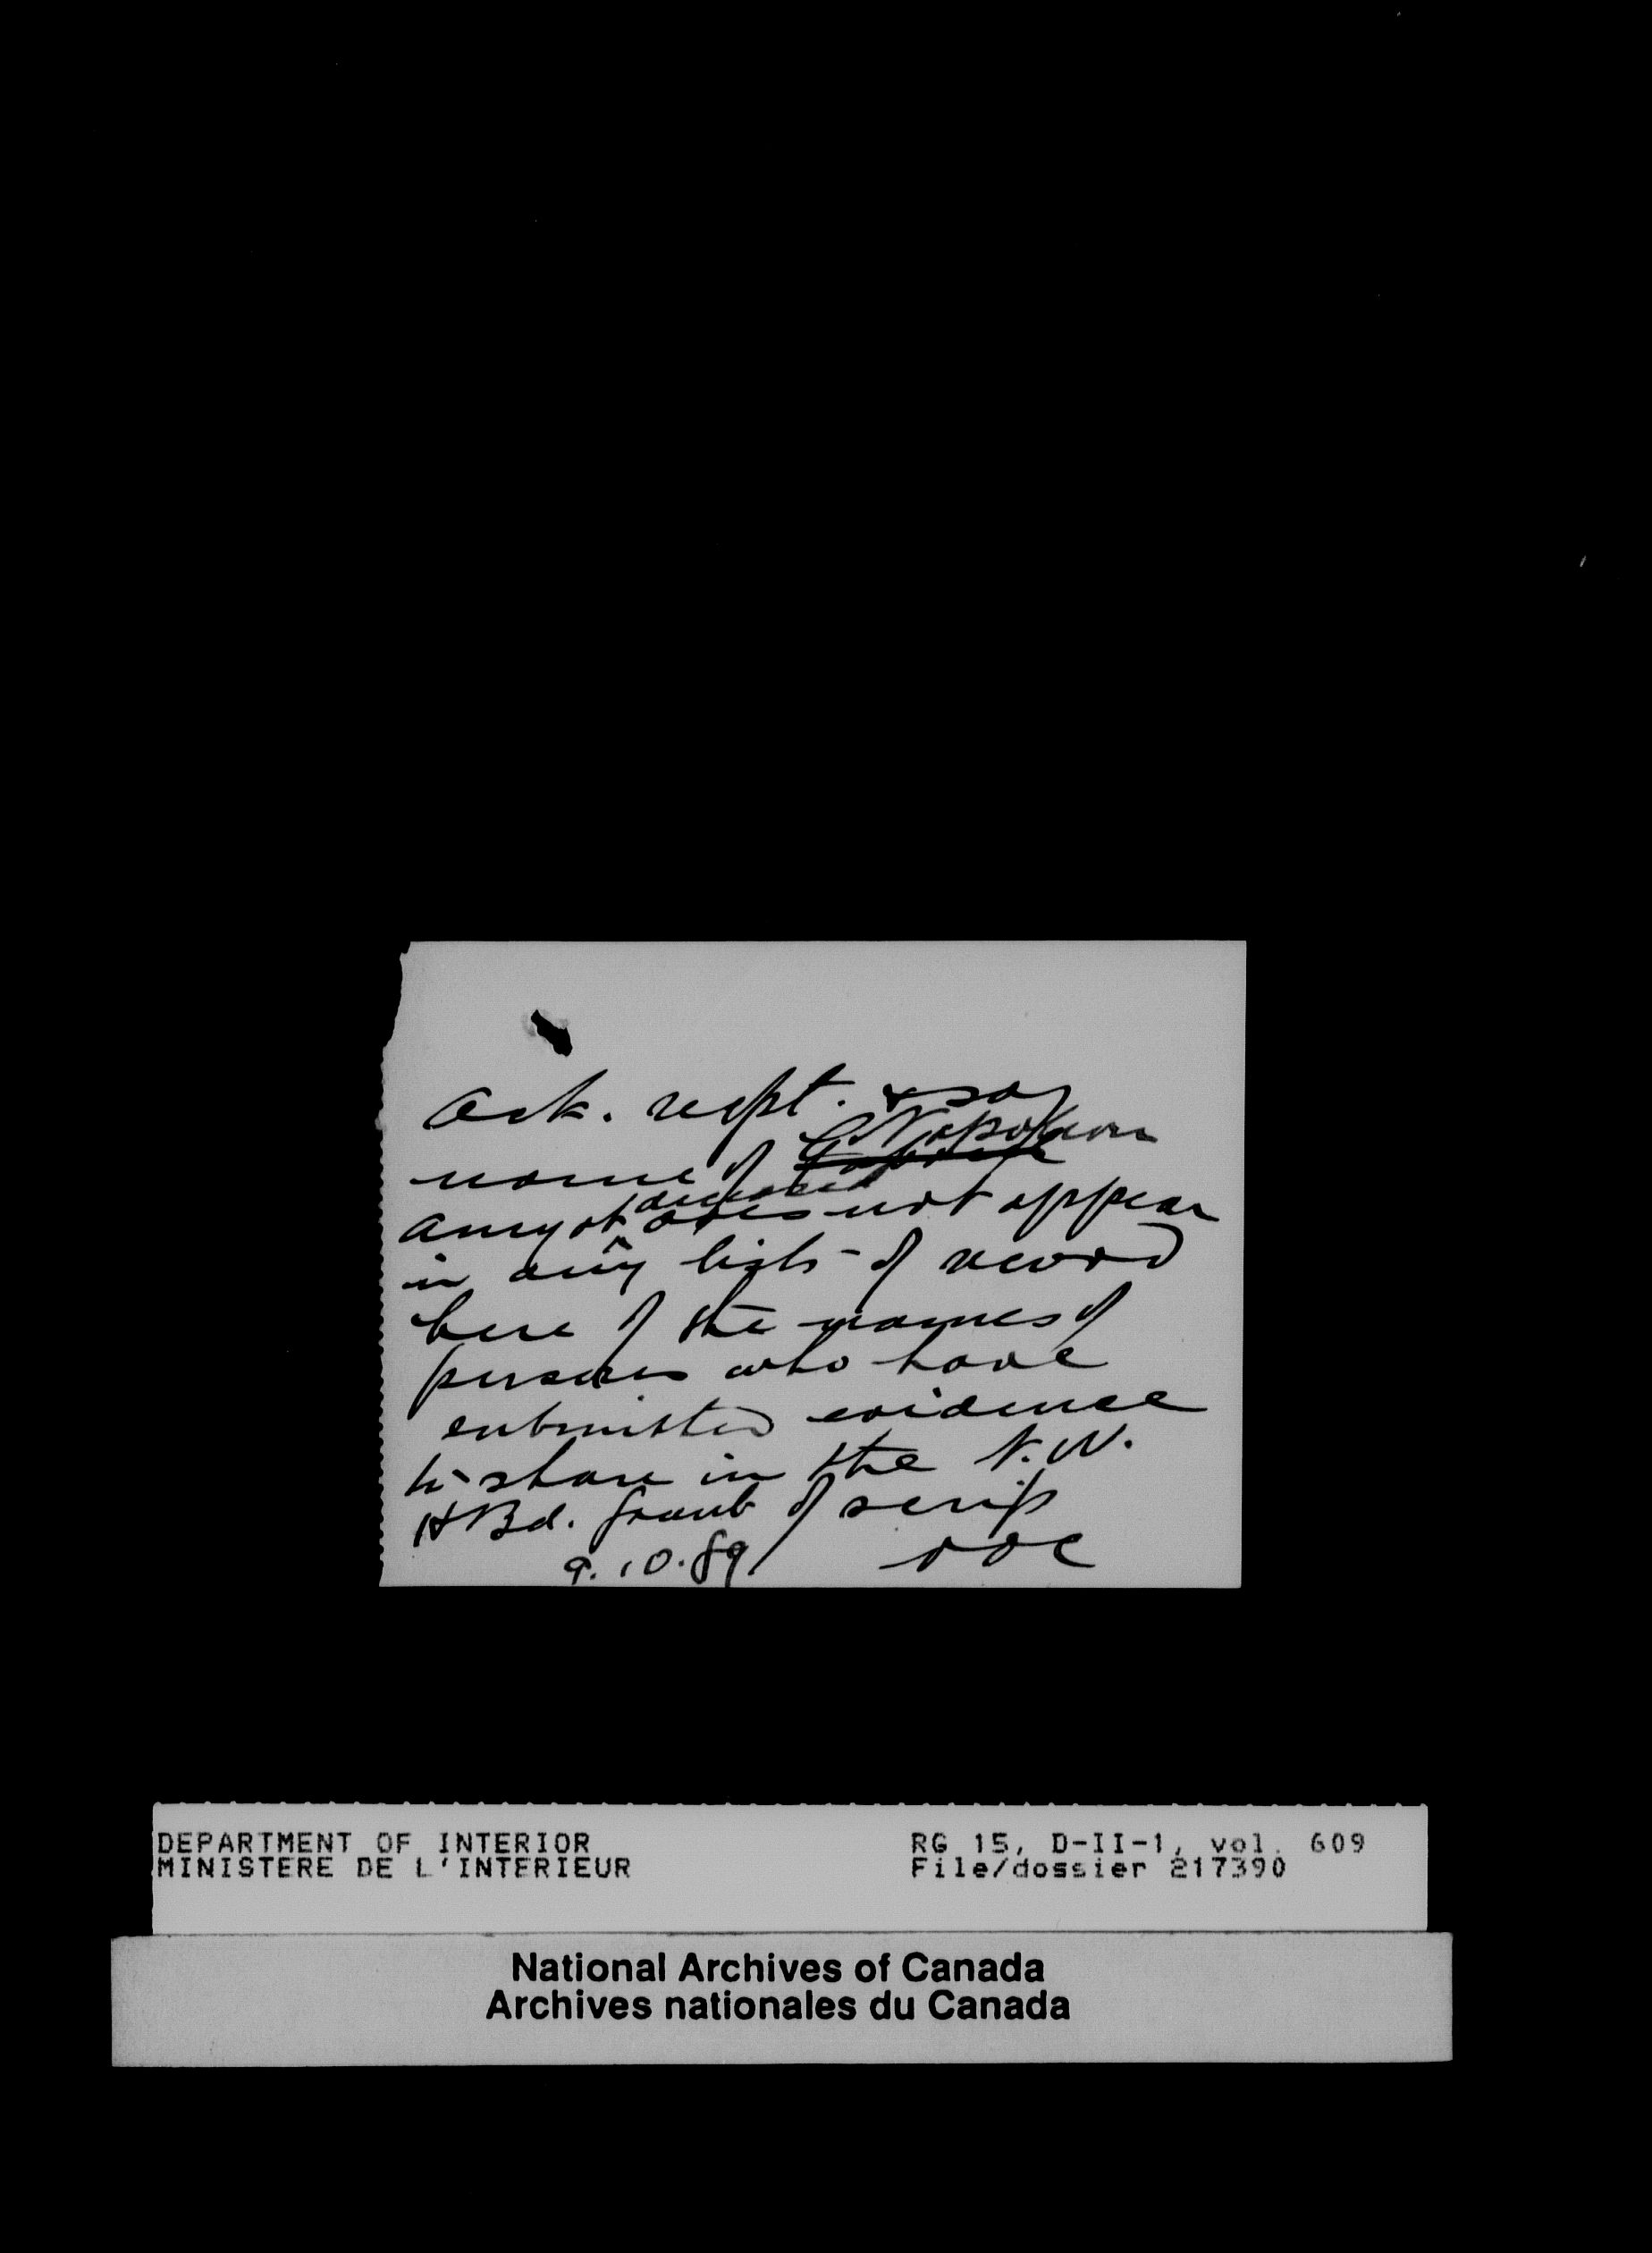 Ack. recpt. & say
name of Napoleon
Amyot deceased does not appear
in any lists of record
here of the names of
persons who have
submitted evidence
to share in the N.W.
H Bd. grant of scrip
9.10.89
DEPARTMENT OF INTERIOR
MINISTERE DE L'INTERIEUR
RG 15, D-II-1, vol. 609
File/dossier 217390
National Archives of Canada
Archives nationales du Canada